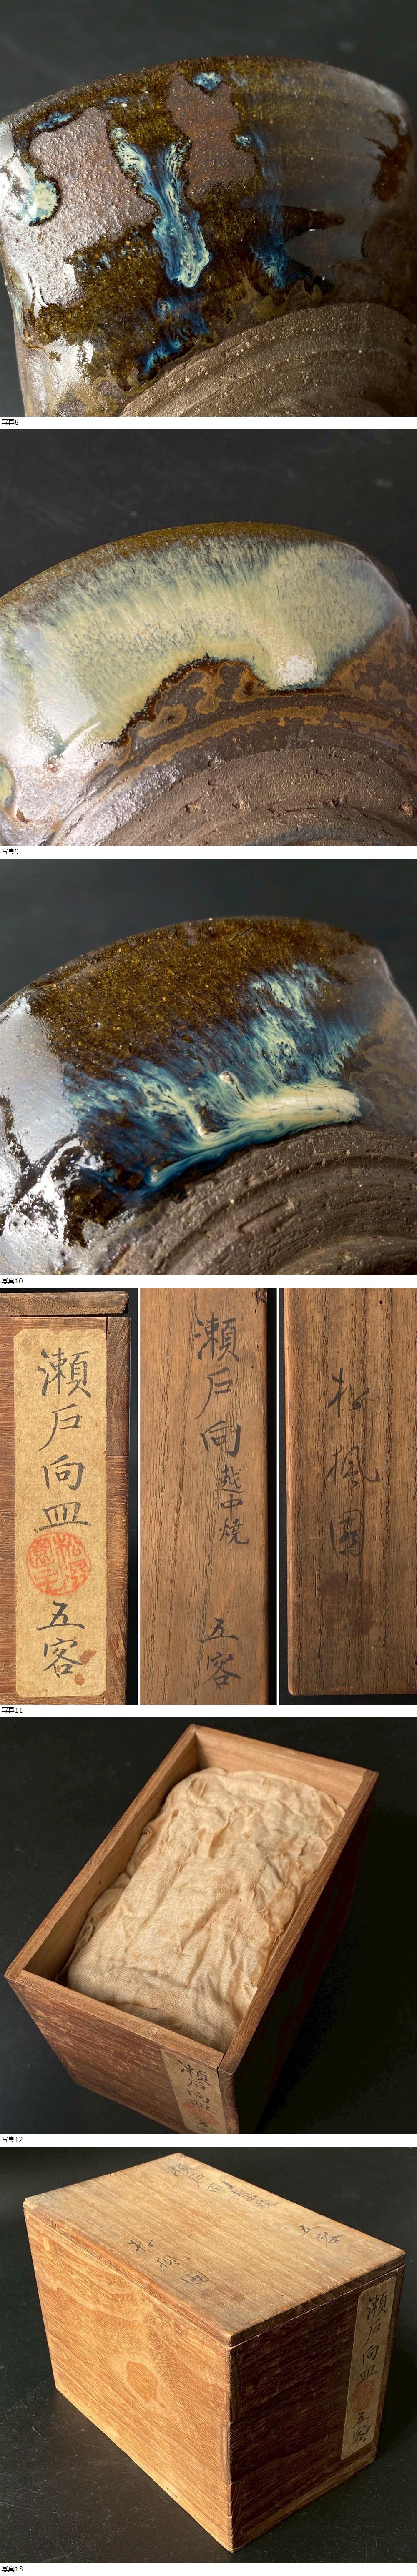 写真8
写真9
写真10
瀬戸向皿
五客
瀬戸向
越中焼
五客
松楓園
写真11
瀬戸向皿
写真12
松楓園
五客
瀬戸向皿
五客
写真13